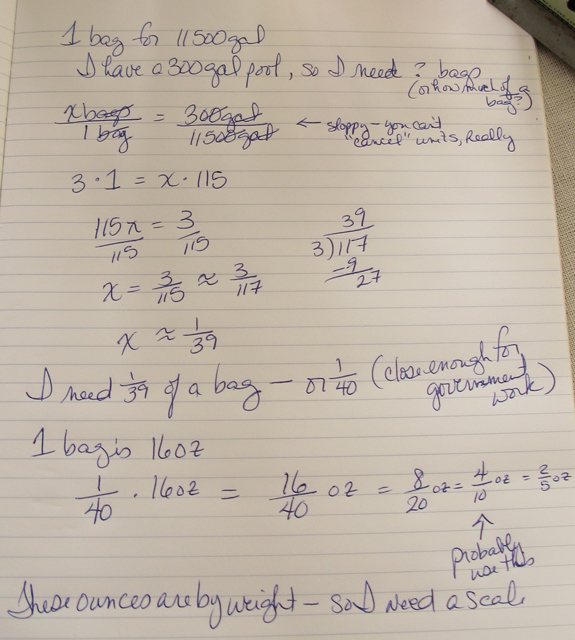 1 bag for 11500gal
I have a 300gal pool, so I need ? bags
(or how much of a bag?)
x bags / 1 bag = 300gal / 11500gal ← sloppy - you can't "cancel" units, really
3 · 1 = x · 115
115x / 115 = 3 / 115
x = 3/115 ≈ 3/117
39
3)117
-9
27
x ≈ 1/39
I need 1/39 of a bag — or 1/40 (close enough for government work)
1 bag is 16oz
1/40 · 16oz = 16/40 oz = 8/20 oz = 4/10 oz = 2/5 oz
↑
probably use this
These ounces are by weight - so I need a scale